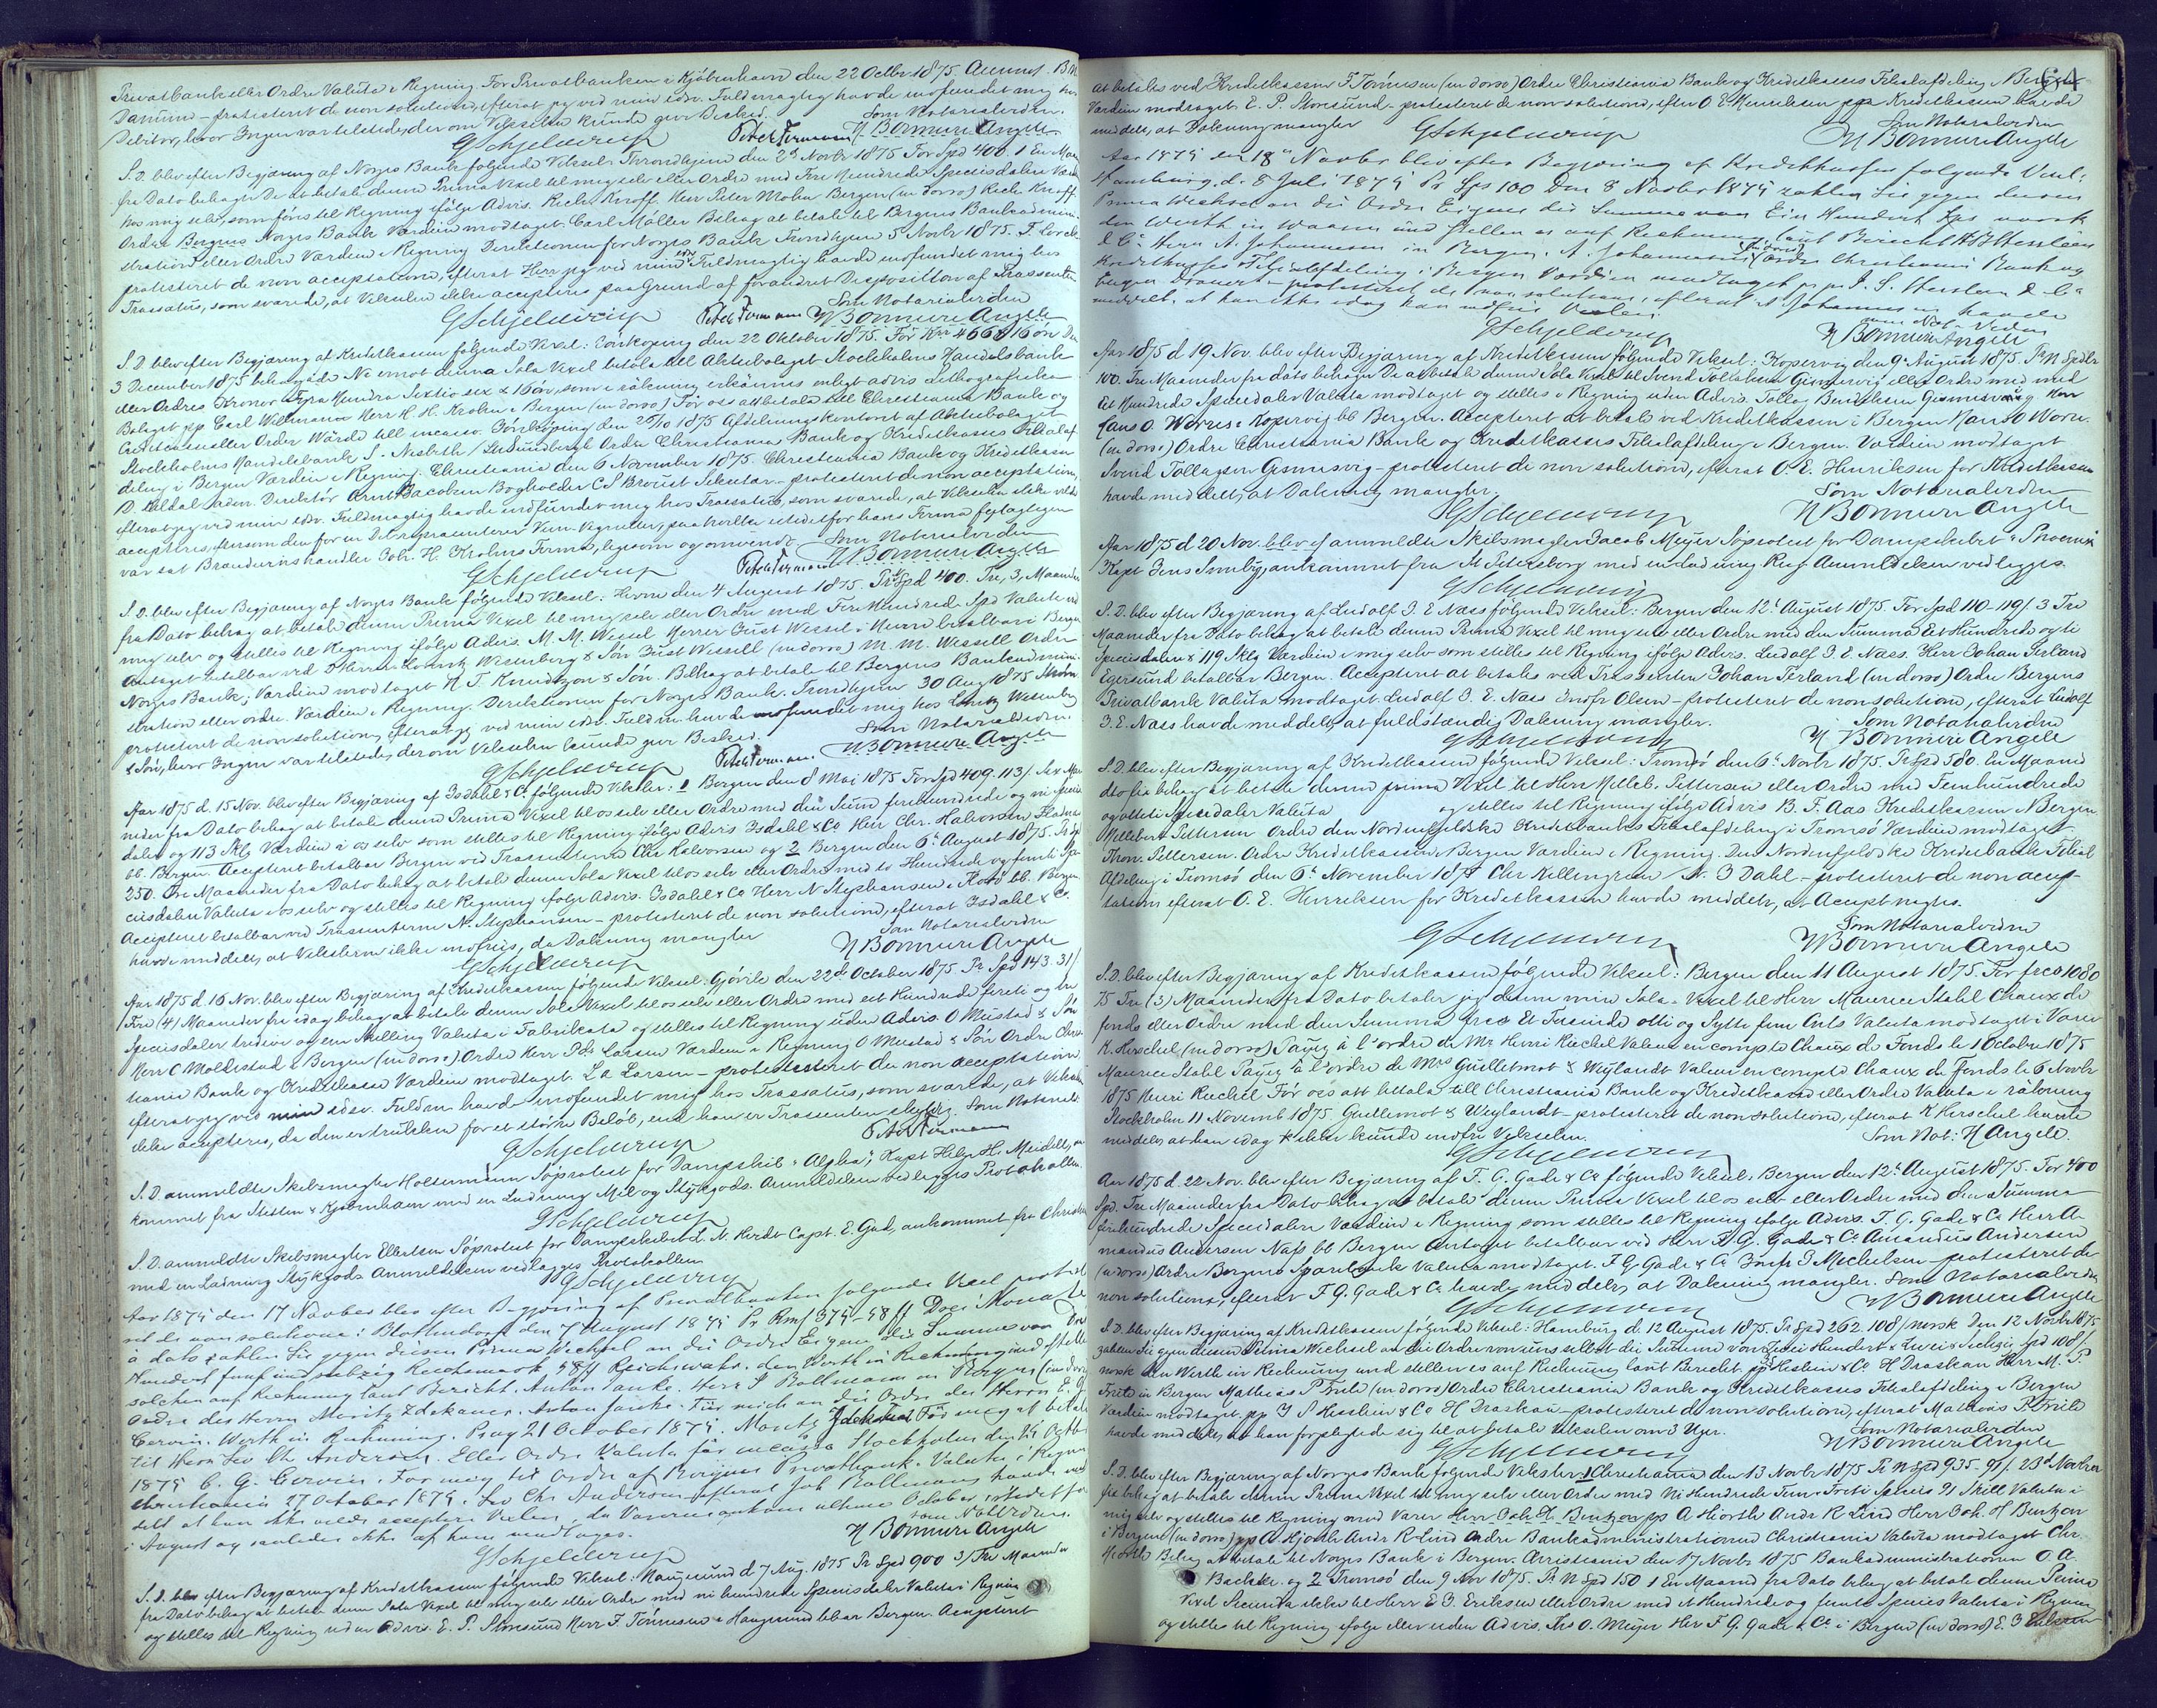 Privatbank eller Ordre Valuta i Regning. For Privatbanken i Kjøbenhavn den 22 Octbr 1875.
Danum – protesteret de non solutione, efterat jeg ved min edsv. Fuldmægtig havde indfundet mig hos
Debitor, hvor Ingen var tilstede, der om Vekselen kunde give Besked. Som Notarialvidne
GSchjelderup Peter Fermann N Bonnevie Angell
S.D. blev efter Begjæring af Norges Bank følgende Veksel: Throndhjem den 2d Novbr 1875 For Spd 400. 1 En Maaned
fra Dato behager De at betale denne Prima Vexel til mig selv eller Ordre med Fire Hundrede Speciesdaler Værdien
hos mig selv, som føres til Regning ifølge Advis. Rich. Knoff. Herr Peter Mohn Bergen (in dorso) Rich. Knoff.
Ordre Bergens Norges Bank Værdien modtaget. Carl Møller Behag at betale til Bergens Bankadmini-
stration eller Ordre Værdien i Regning Direktionen for Norges Bank Trondhjem 5 Novbr 1875.
protesteret de non acceptatione, efterat Herr jeg ved min edsv Fuldmægtig havde indfundet mig hos
Trassatus, som svarede, at Vekselen ikke accepteres paa Grund af forandret Disposition af Trassenten
Som Notarialvidne
GSchjelderup Peter Fermann N Bonnevie Angell
S.D. blev efter Begjæring af Kreditkassen følgende Vexel: Jönköping den 22 Oktober 1875. För Kr 466 16 öre Den
3 December 1875 behagade Ni emot denna Sola Vexel betala till Aktiebolaget Stockholms Handelsbank
eller Ordres Kronor Fyra Hundra Sextio sex & 16 öre, som i räkning erkännes enligt advis Lithografiska
Bolaget pp Carl Wellmann Herr H. H. Krohn i Bergen (in dorso) För oss att betala till Christiania Bank og
Creditcasse eller Order Värdet till incasso. Jönköping den 25/10 1875 Afdelningskontoret af Aktiebolaget
Stockholms Handelsbank S. Nesbeth / Sundbergh Ordre Christiania Bank og Kreditkasses Filialaf-
deling i Bergen Værdien i Regning. Christiania den 6 November 1875. Christiania Bank og Kreditkasse
D. Meldal adm. Direktør Arnt Jacobsen Bogholder C S Broust Sekretær – protesteret de non acceptatione,
efterat jeg ved min edsv. Fuldmægtig havde indfundet mig hos Trassatus, som svarede, at Vekselen ikke vilde
accepteres, eftersom den for en Del repræsenterer Vin-Vignetter, paa hvilke istedetfor hans Firma feilagtigen
var sat Brændevinshandler Joh. H. Krohns Firma, ligesom og omvendt. Som Notarialvidne
GSchjelderup Peter Fermann N Bonnevie Angell
S.D. blev efter Begjæring af Norges Bank følgende Veksel: Hevne den 4 August 1875. Pr Spd 400. Tre, 3, Maaneder
fra Dato behag at betale denne Prima Vexel til mig selv eller Ordre med Fire Hundrede Spd Valuta ved
mig selv og stilles til Regning ifølge Advis. M. M. Wessel Herrer Just Wessel i Hevne betalbar i Bergen
Antaget betalbar ved D'Herrer Lorentz Wesenberg & Søn Just Wessell (in dorso) M. M. Wessell Ordre
Norges Bank, Værdien modtaget N. T. Knudtzon & Søn. Behag at betale til Bergens Bankadmini-
stration eller ordre. Værdien i Regning. Direktionen for Norges Bank. Trondhjem 30 Aug 1875
protesteret de non solutione, efterat jeg ved min edsv. Fuldm. havde indfundet mig hos Lorentz Wesenberg
& Søn, hvor Ingen var tilstede, der om Vekselen kunde give Besked. Som Notarialvidne
GSchjelderup Peter Fermann. N Bonnevie Angell
Aar 1875 d. 15 Nov. blev efter Begjæring af Isdahl & Co følgende Veksler: 1 Bergen den 8 Mai 1875 For Spd 409. 113/. Sex Maa-
neder fra Dato behag at betale denne Prima Vexel til os selv eller Ordre med den Sum firehundrede og ni Species-
daler og 113 Skg Værdien i os selv som stilles til Regning ifølge Advis Isdahl & Co Herr Chr. Halvorsen
bb. Bergen. Accepteret betalbar Bergen ved Trassenterne Chr Halvorsen og 2 Bergen den 6te August 1875. Pr Spd
250. Tre Maaneder fra Dato behag at betale denne Sola Vexel til os selv eller Ordre med to Hundrede og femti Spe-
ciesdaler Valuta i os selv og stilles til Regning ifølge Advis. Isdahl & Co Herr N Stephansen i bb. Bergen
Accepteret betalbar ved Trassenterne N. Stephansen – protesteret de non solutione, efterat Isdahl & Co.
havde meddelt, at Vekslerne ikke indfries, da Dækning mangler Som Notarialvidne
GSchjelderup N Bonnevie Angell
Aar 1875 d. 16 Nov. blev efter Begjæring af Kreditkassen følgende Veksel: Gjövik den 22de October 1875 Pr Spd 143. 31/.
Fire (4) Maaneder fra idag behag at betale denne Sola Vexel til os selv eller Ordre med ett Hundrede firti og tre
Speciesdaler tredive og en Skilling Valuta i Fabrikata og stilles til Regning uden Advis. O Mustad & Søn
Herr C Moldestad i Bergen (in dorso) Ordre Herr Pdr Larsen Værdien i Regning O Mustad & Søn Ordre Chris-
tiania Bank og Kreditkasse Værdien modtaget. L A Larsen – protesteret de non acceptatione
efterat jeg ved min edsv. Fuldm. havde indfundet mig hos Trassatus, som svarede, at Vekselen
ikke accepteres, da den er trukken for et større Beløb, end han er Trassenten skyldig. Som Notarialv.
GSchjelderup Peter Fermann
S.D. anmeldte Skibsmægler Holtermann Søprotest for Dampskib "Alpha", Kapt Helge H. Meidell,
kommet fra Stettin & Kjøbenhavn med en Ladning Mel og Stykgods. Anmeldelsen vedlægges Protokollen.
GSchjelderup
S.D. anmeldte Skibsmægler Ellertsen Søprotest for Dampskibet L. N. Hvidt Capt. E. Gad, ankommet fra Christia
med en Ladning Stykgods Anmeldelsen vedlægges Protokollen
GSchjelderup
Aar 1875 den 17 November blev efter Begjæring af Privatbanken følgende Vexel protest
ret de non solutione: Blottendorf den 7 August 1875 Pr Rmf 375–58 ff Drei Monate
a dato zahlen Sie gegen diesen Prima Wechsel an die Ordre Eigene die Summe von Drei
Hundert fünf und siebzig Reichsmark 58 ff Reichswähr. den Werth in Rechnung und stellen
solchen auf Rechnung laut Bericht. Anton Janke. Herr J Bollmann in Bergen (in dorso
Ordre des Herrn Moritz Zdekauer. Anton Janke. Für mich an die Ordre des Herrn C. G
Cervin. Werth in Rechnung. Prag 21 October 1875. Moritz Zdekauer För mig at betala
til Herr Leo Chr Andersen. Eller Ordre Valuta får incassa Stockholm den 25 Octbr
1875 C. G. Cervin. For mig til Ordre af Bergens Privatbank. Valuta i Regning
Christiania 27 October 1875. Leo Chr. Andersen. efterat Joh Bollmann havde med
delt at han ikke vilde acceptere Vexlen, da Varerne ankom ultimo October istedetfor
i August og saaledes ikke af ham modtages. som Not Vidne
N Bonnevie Angell
GSchjelderup
S.D. blev efter Begjæring af Kreditkassen følgende Veksel: Haugesund d 7 Aug. 1875 Pr Spd 900 3/Tre Maaneder
fra Dato behag at betale denne Sola Vexel til mig selv eller Ordre med ni hundrede Speciesdaler Valuta i Regning
og stilles til Regning uden Advis. E. P. Stonsund Herr F. Tönnesen i Haugesund bbar Bergen. Accepteret
64
at betales ved Kreditkassen F Tönnesen (in dorso) Ordre Christiania Bank og Kreditkasses Filialafdeling i Bergen
Værdien modtaget E. P. Stonsund – protesteret de non solutione, efter O. E. Henriksen ppa Kreditkassen havde
meddelt, at Dækning mangler Som Notarialvidne
GSchjelderup N Bonnevie Angell
Aar 1875 den 18de Novbr blev efter Begjæring af Kreditkassen følgende Vexel:
Hamburg d. 8 Juli 1875 Pr Sps 100 Den 8 Novbr 1875 zahlen Sie gegen diesen
Prima Wechsel an die Ordre Eigene die Summe von Ein Hundert Sps norsk
den Werth in Waaren und stellen es auf Rechnung laut Bericht Hesslein
& Co. Herrn A. Johannessen in Bergen. A. Johannessen (in dorso) Ordre Christiania Bank og
Kreditkasses Filialafdeling i Bergen Værdien modtaget pr pr J. S. Hesslein & Co
Eugen – protesteret de non solutione, efterat A Johannessen havde
meddelt, at han ikke idag kan indfri Vexlen. som Not. Vidne
GSchjelderup N Bonnevie Angell
Aar 1875 d 19 Nov. blev efter Begjæring af Kreditkassen følgende Veksel: Kopervig den 9de August 1875. Pr N Spdlr
100. Tre Maaneder fra dato behager De at betale denne Sola Vexel til Svend Tollagsen Gismervig eller Ordre med med
Et Hundrede Speciedaler Valuta modtaget og stilles i Regning uden Advis. Tollag Bendiksen Gismervig Herr
Hans O. Worres Kopervig bb Bergen. Accepteret at betale ved Kreditkassen i Bergen Hans O Worre.
(in dorso) Ordre Christiania Bank og Kreditkasses Filialafdeling i Bergen. Værdien modtaget
Svend Tollagsen Gismervig – protesteret de non solutione, efterat O. E. Henriksen for Kreditkassen
havde meddelt, at Dækning mangler. Som Notarialvidne
GSchjelderup N Bonnevie Angell
Aar 1875 d 20 Nov. blev af anmeldte Skibsmægler Jacob Meyer Søprotest for Dampskibet "Phoenix"
Kapt Jens Sunby, ankommet fra St Petersborg med en Ladning Rug. Anmeldelsen vedlægges.
GSchjelderup
S.D. blev efter Begjæring af Ludolf J. E Næss følgende Veksel: Bergen den 12te August 1875. For Spd 110–119/. 3 Tre
Maaneder fra Dato behag at betale denne Prima Vexel til mig selv eller Ordre med den Summa Et Hundrede og ti
Speciesdaler & 119 Sklg Værdien i mig selv som stilles til Regning ifølge Advis. Ludolf J. E. Næss. Herr Johan Terland
Egersund betalbar Bergen. Accepteret at betales ved Trassenten Johan Terland (in dorso) Ordre Bergens
Privatbank Valuta modtaget Ludolf J. E. Næss Olsen – protesteret de non solutione, efterat Ludolf
J. E. Næss havde meddelt, at fuldstændig Dækning mangler. Som Notarialvidne
GSchjelderup N Bonnevie Angell
S.D. blev efter Begjæring af Kreditkassen følgende Veksel: Tromsö den 6te Novbr 1875. Pr Spd 580. En Maaned
dto fra behag at betale denne prima Vexel til Herr Melleb. Pettersen eller Ordre med Femhundrede
og otteti Speciesdaler Valuta og stilles til Regning ifølge Advis B. F. Aas Kreditkassen N Bergen
Mellebert Pettersen Ordre den Nordenfjeldske Kreditbanks Filialafdeling i Tromsö Værdien modtaget
Thorv. Pettersen. Ordre Kreditkassen Bergen Værdien i Regning. Den Nordenfjeldske Kreditbank Filial
Afdeling i Tromsö den 6te November 1875 Chr Killengreen / N. J Dahl – protesteret de non accep-
tatione efterat O. E. Henriksen for Kreditkassen havde meddelt, at Accept nægtes.
Som Notarialvidne
GSchjelderup N Bonnevie Angell
S.D. blev efter Begjæring af Kreditkassen følgende Veksel: Bergen den 11 August 1875. For frcs 1080
75 Tre (3) Maaneder fra Dato betaler jeg denne min Sola-Vexel til Herr Maurice Stahl Chaux de
fonds eller Ordre med den Summa frcs Et Tusinde otti og Sytti fem Cnts Valuta modtaget i Varer
K. Herschel (in dorso) Payez à l'ordre de Mr Henri Riechel Valeur en compte Chaux de Fonds le 1 Octobre 1875
Maurice Stahl Payez à l'ordre de Mrs Guillemot & Weylandt Valeur en compte Chaux de Fonds le 6 Novbr
1875 Henri Riechel För oss att betala till Christiania Bank og Kreditkasse eller Ordre Valuta i räkning
Stockholm 11 Novemb 1875 Guillemot & Weylandt – protesteret de non solutione, efterat K Herschel havde
meddelt, at han idag ikke kunde indfri Vekselen. Som Not: N Angell.
GSchjelderup
Aar 1875 d. 22 Nov. blev efter Begjæring af F. G. Gade & Co følgende Veksel: Bergen den 12te August 1875. For 400
Spd. Tre Maaneder fra Dato behag at betale denne Prima Vexel til os selv eller Ordre med den Summa
firehundrede Speciedaler Værdien i Regning som stilles til Regning ifølge Advis. F. G. Gade & Co Herr A-
mandus Andersen Næss bb Bergen Antaget betalbar ved Herr F. G. Gade & Co Amandus Andersen
(in dorso) Ordre Bergens Sparebank Valuta modtaget. F G Gade & Co J Michelsen – protesteret de
non solutione, efterat F. G. Gade & Co havde meddelt, at Dækning mangler. Som Notarialvidne
GSchjelderup N Bonnevie Angell
S.D. blev efter Begjæring af Kreditkassen følgende Veksel: Hamburg d. 12 August 1875. Pr Spd 262. 108/ norsk Den 12 Novbr 1875
zahlen Sie gegen diesen Prima Wechsel an die Ordre von uns selbst die Summe von Zwei Hundert & Zwei & Sechzig Spd 108/.
norsk den Werth in Rechnung und stellen es auf Rechnung laut Bericht. pp Heslein & Co H Draskau Herr M. P.
Friele in Bergen Mathias P Friele (in dorso) Ordre Christiania Bank og Kreditkasses Filialafdeling i Bergen
Værdien modtaget. pp J S Hesslein & Co H Draskau – protesteret de non solutione, efterat Mathias P. Friele
havde meddelt, at han forpligtede sig til at betale Vekselen om 3 Uger. Som Notarialvidne
GSchjelderup N Bonnevie Angell
S.D. blev efter Begjæring af Norges Bank følgende Veksler: 1 Christiania den 13 Novbr 1875 Pr N Spd 935. 91/. 23d Novbr
fra behag at betale denne Prima Vexel til mig selv eller Ordre med Ni Hundrede Fem & Treti Species 91 Skill Valuta i
mig selv og stilles til Regning med Varer Herr Joh. H. Bentzon pp A Hiorth Andr R Lind Herr Joh. H Bentzon
i Bergen (in dorso) pp A. Hjorth Andr R Lind Ordre Bankadministrationen Christiania Valuta modtaget Chr.
Hiorth Behag at betale til Norges Bank i Bergen. Christiania den 17 Novbr 1875 Bankadministrationen O. A.
Bachke. og 2 Tromsö den 9 Nov 1875. Pr N Spd 150 1 En Maaned fra Dato behag at betale denne Prima
Vexel Secunda ikke til Herr E J. Eriksen eller Ordre med et Hundrede og femti Species Valuta i Regning
og stilles til Regning ifølge eller uden Advis. Ths O. Meyer Herr F. G. Gade & Co i Bergen (in dorso) E. J Eriksen